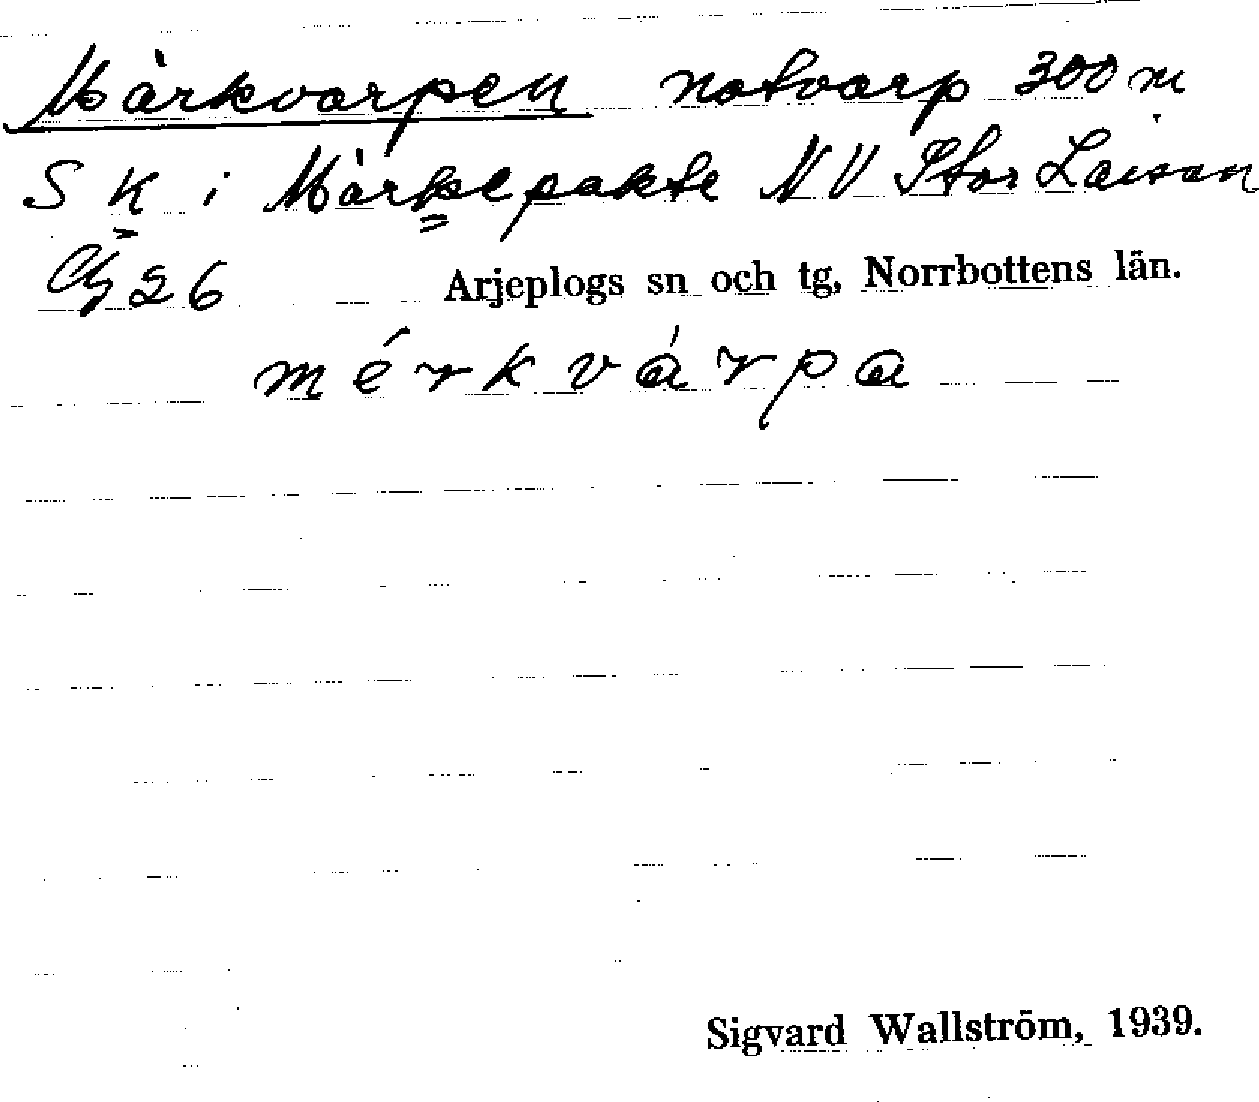 Märkvarpen notvarp 300 m
S K i Märkepakte NV Stor Laisan
26 Arjeplogs sn och tg, Norrbottens län.
mérkvárpa
Sigvard Wallström, 1939.